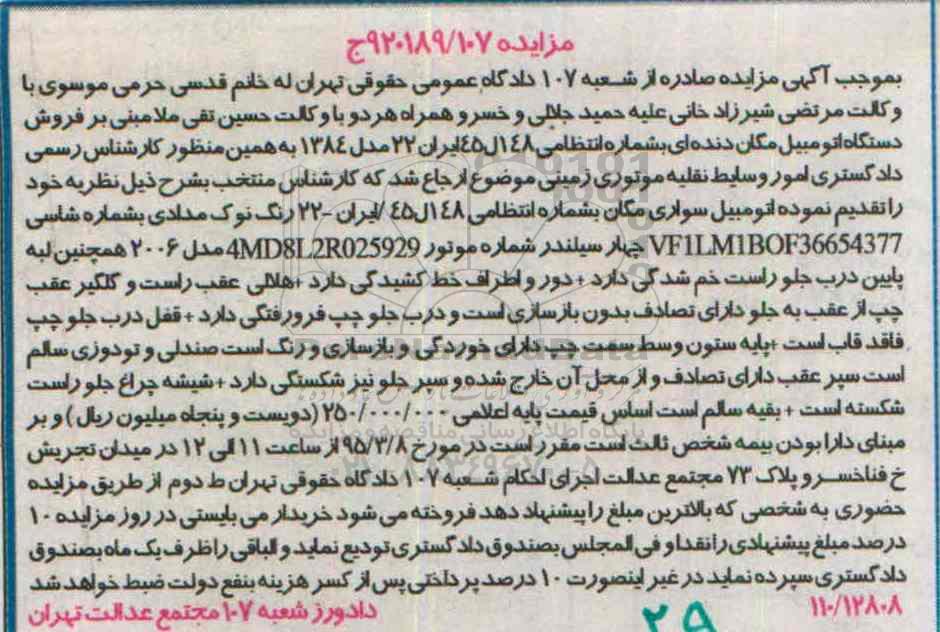 مزایده ۹۲۰۱۸۹/۱۰۷ج
بموجب آگهی مزایده صادره از شعبه ۱۰۷ دادگاه عمومی حقوقی تهران له خانم قدسی حرمی موسوی با
وکالت مرتضی شیرزاد خانی علیه حمید جلالی و خسرو همراه هر دو با وکالت حسین تقی ملامبنی بر فروش
دستگاه اتومبیل مگان دنده ای بشماره انتظامی ۱۴۸ل۴۵ایران ۲۲ مدل ۱۳۸٤ به همین منظور کارشناس رسمی
دادگستری امور وسایط نقلیه موتوری زمینی موضوع ارجاع شد که کارشناس منتخب بشرح ذیل نظریه خود
را تقدیم نموده اتومبیل سواری مگان بشماره انتظامی ۱۴۸ل۴۵ /ایران -۲۲ رنگ نوک مدادی بشماره شاسی
VF1LM1BOF36654377 چهار سیلندر شماره موتور 4MD8L2R025929 مدل ۲۰۰۶ همچنین لبه
پایین درب جلو راست خم شدگی دارد + دور و اطراف خط کشیدگی دارد +هلالی عقب راست و گلگیر عقب
چپ از عقب به جلو دارای تصادف بدون بازسازی است و درب جلو چپ فرورفتگی دارد + قفل درب جلو چپ
فاقد قاب است +پایه ستون وسط سمت چپ دارای خوردگی و بازسازی و رنگ است صندلی و تودوزی سالم
است سپر عقب دارای تصادف و از محل آن خارج شده و سپر جلو نیز شکستگی دارد + شیشه چراغ جلو راست
شکسته است + بقیه سالم است اساس قیمت پایه اعلامی ۲۵۰/۰۰۰/۰۰۰ (دویست و پنجاه میلیون ریال) و بر
مبنای دارا بودن بیمه شخص ثالث است مقرر است در مورخ ۹۵/۳/۸ از ساعت ۱۱ الی ۱۲ در میدان تجریش
خ فناخسرو پلاک ۷۳ مجتمع عدالت اجرای احکام شعبه ۱۰۷ دادگاه حقوقی تهران ط دوم از طریق مزایده
حضوری به شخصی که بالاترین مبلغ را پیشنهاد دهد فروخته می شود خریدار می بایستی در روز مزایده ۱۰
درصد مبلغ پیشنهادی را نقدا و فی المجلس بصندوق دادگستری تودیع نماید و الباقی را ظرف یک ماه بصندوق
دادگستری سپرده نماید در غیر اینصورت ۱۰ درصد پرداختی پس از کسر هزینه بنفع دولت ضبط خواهد شد
۱۱۰/۱۲۸۰۸
دادورز شعبه ۱۰۷ مجتمع عدالت تهران
۲۹